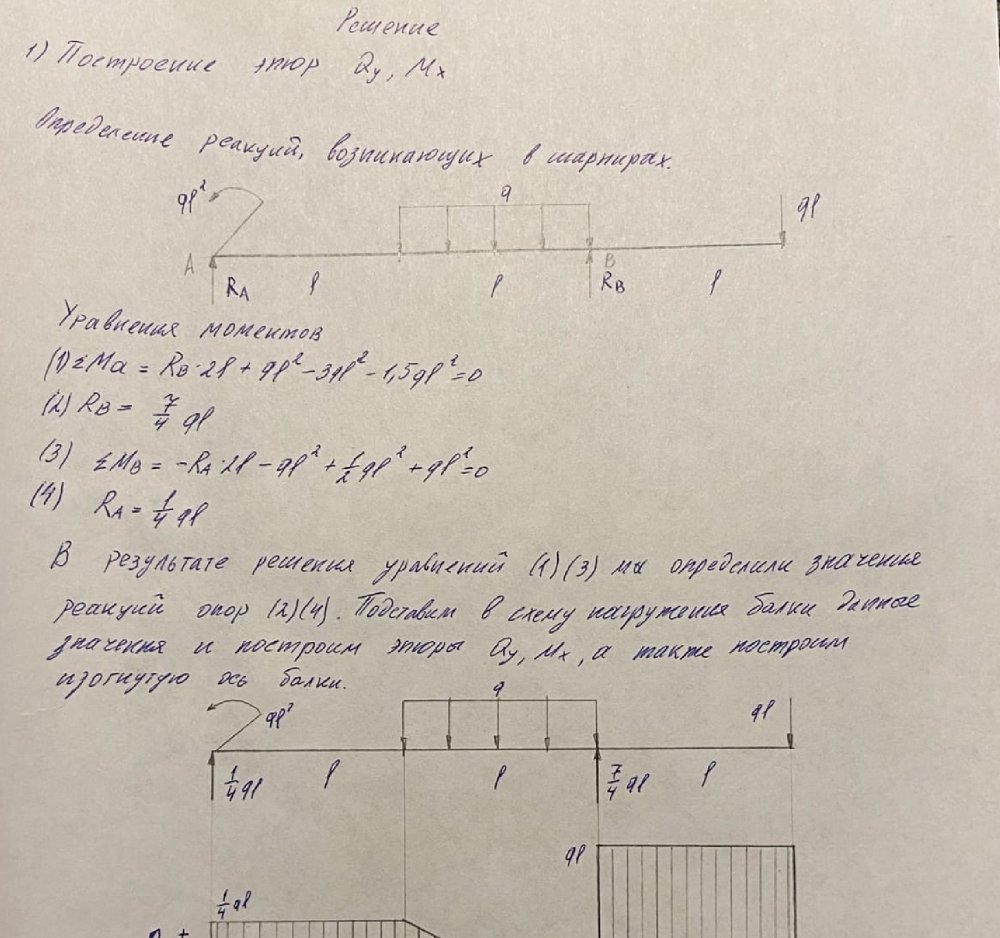 Решение
1) Построение эпюр Qy, Mx
Определение реакций, возникающих в шарнирах.
ql² q ql
A B
RA l l RB l
Уравнения моментов
(1) ΣMa = RB·2l + ql² - 3ql² - 1,5ql² = 0
(2) RB = 7/4 ql
(3) ΣMB = -RA·2l - ql² + 1/2 ql² + ql² = 0
(4) RA = 1/4 ql
В результате решения уравнений (1)(3) мы определили значения
реакций опор (2)(4). Подставим в схему нагружения балки данные
значения и построим эпюры Qy, Mx, а также построим
изогнутую ось балки.
ql² q ql
1/4 ql l l 7/4 ql l
ql
1/4 ql
+